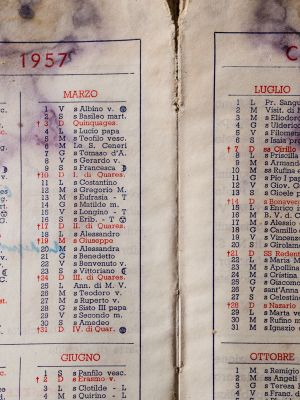 1957
MARZO
1 V s Albino v.
2 S s Basileo mart.
†3 D Quinquages.
4 L s Lucio papa
5 M s Teofilo vesc.
6 M Le S. Ceneri
7 G s Tomaso d'A.
8 V s Gerardo v.
9 S s Francesca
†10 D I. di Quares.
11 L s Costantino
12 M s Gregorio M.
13 M s Eufrasia - T
14 G s Matilde m.
15 V s Longino - T
16 S s Erib. - T
†17 D II. di Quares.
18 L s Alessandro
†19 M s Giuseppe
20 M s Alessandra
21 G s Benedetto
22 V s Benvenuto v.
23 S s Vittoriano
†24 D III. di Quares.
25 L Ann. di M. V.
26 M s Teodoro v.
27 M s Ruperto v.
28 G s Sisto III papa
29 V s Secondo m.
30 S s Amedeo
†31 D IV. di Quar.
GIUGNO
1 S s Panfilo vesc.
†2 D s Erasmo v.
3 L s Clotilde - L
4 M s Quirino - L
LUGLIO
1 L Pr. Sangu
2 M Visit. di M
3 M s Eliodor
4 G s Ulderic
5 V s Filomen
6 S s Isaia pr
†7 D ss Cirillo
8 L s Priscill
9 M s Armand
10 M ss Rufina e
11 G s Pio I pap
12 V s Giov. G
13 S s Gioele p
†14 D s Bonaven
15 L s Enrico
16 M B. V. del
17 M s Alessio
18 G s Camillo
19 V s Vincen
20 S s Girolam
†21 D SS Redent
22 L s Maria M
23 M s Apollina
24 M s Cristina
25 G s Giacomo
26 V sant'Anna
27 S s Celestin
†28 D s Nazario
29 L s Marta ve
30 M s Rufino m
31 M s Ignazio
OTTOBRE
1 M s Remigio
2 M ss Angeli
3 G s Teresa
4 V s Franc